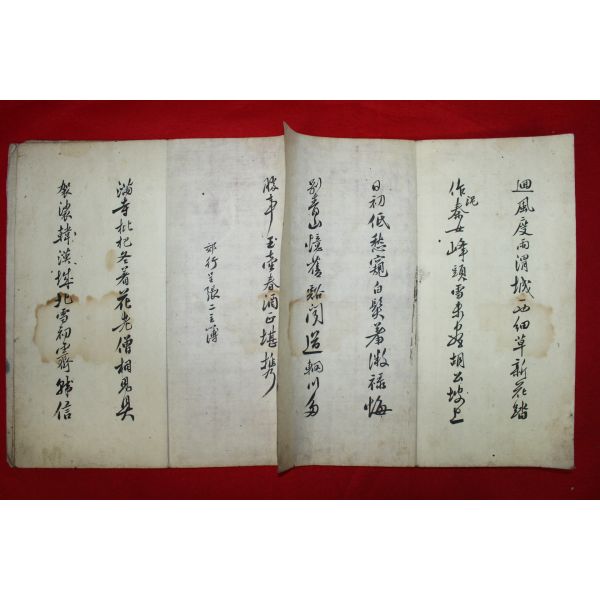 迴風度雨渭城西細草新花踏
作泥秦女峰頭雪未盡胡公坡上
日初低愁窺白鬢羞微祿悔
別青山憶舊谿聞道輞川多
勝事玉壺春酒正堪攜
郊行呈張二主簿
滿寺枇杷冬著花老僧相見具
袈裟韓漢城北雪初霽韓信